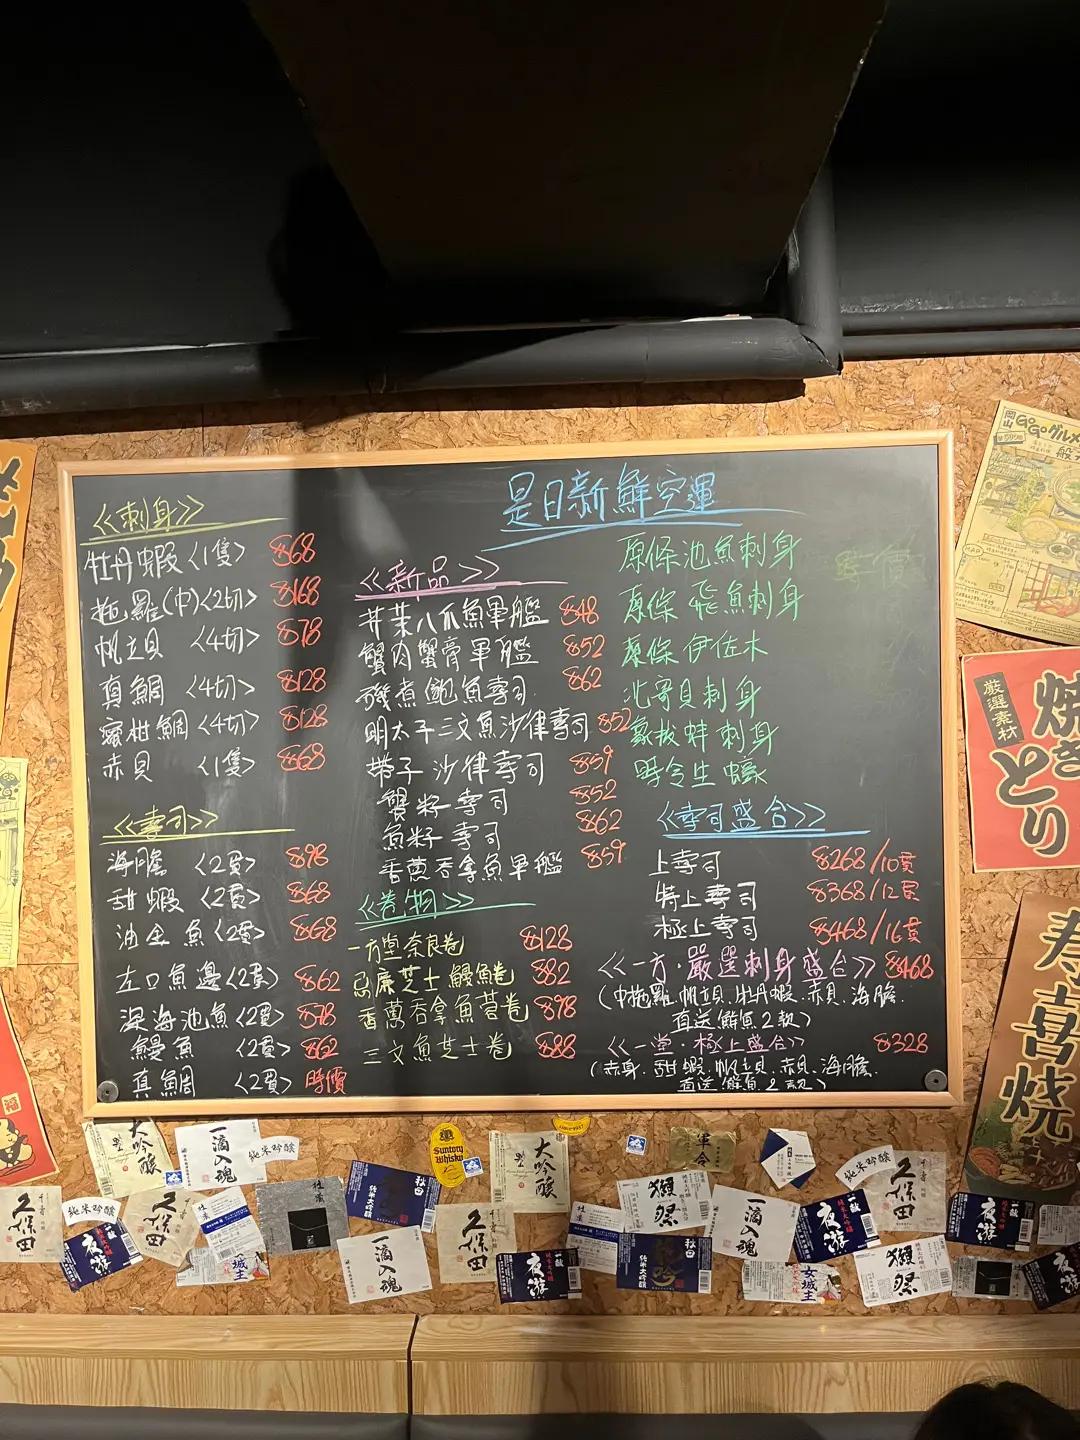 是日新鮮空運
<<刺身>>
牡丹蝦 <1隻> $68
拖羅(中)<2切> $168
帆立貝 <4切> $78
真鯛 <4切> $128
蜜柑鯛 <4切> $128
赤貝 <1隻> $68
<<壽司>>
海膽 <2貫> $98
甜蝦 <2貫> $68
油金魚<2貫> $68
左口魚邊<2貫> $62
深海池魚<2貫> $78
鰻魚 <2貫> $62
真鯛 <2貫> 時價
<<新品>>
芥茉八爪魚軍艦 $48
蟹肉蟹膏軍艦 $52
磯煮鮑魚壽司 $62
明太子三文魚沙律壽司 $52
帶子沙律壽司 $59
蟹籽壽司 $52
魚籽壽司 $62
香蔥吞拿魚軍艦 $59
<<卷物>>
一方堂奈良卷 $128
忌廉芝士鰻魚卷 $82
香蔥吞拿魚蓉卷 $98
三文魚芝士卷 $88
原條池魚刺身 時價
原條飛魚刺身
原條伊佐木
北寄貝刺身
象拔蚌刺身
時令生蠔
<<壽司盛合>>
上壽司 $268/10貫
特上壽司 $368/12貫
極上壽司 $468/16貫
<<一方·嚴選刺身盛合>> $468
(中拖羅.帆立貝.牡丹蝦.赤貝.海膽.
直送鮮魚2款)
<<一堂·極上盛合>> $328
(赤身.甜蝦.帆立貝.赤貝.海膽.
直送鮮魚2款)
岡山
GOGOグルメ
厳選素材
焼きとり
寿喜焼
福
大吟醸
一滴入魂
純米吟醸
Suntory
Whisky
大吟醸
久保田
純米吟醸
夜游
久保田
女城主
秋田
純米大吟醸
一滴入魂
久保田
夜游
獺祭
秋田
純米大吟醸
一滴入魂
夜游
女城主
純米吟醸
久保田
獺祭
夜游